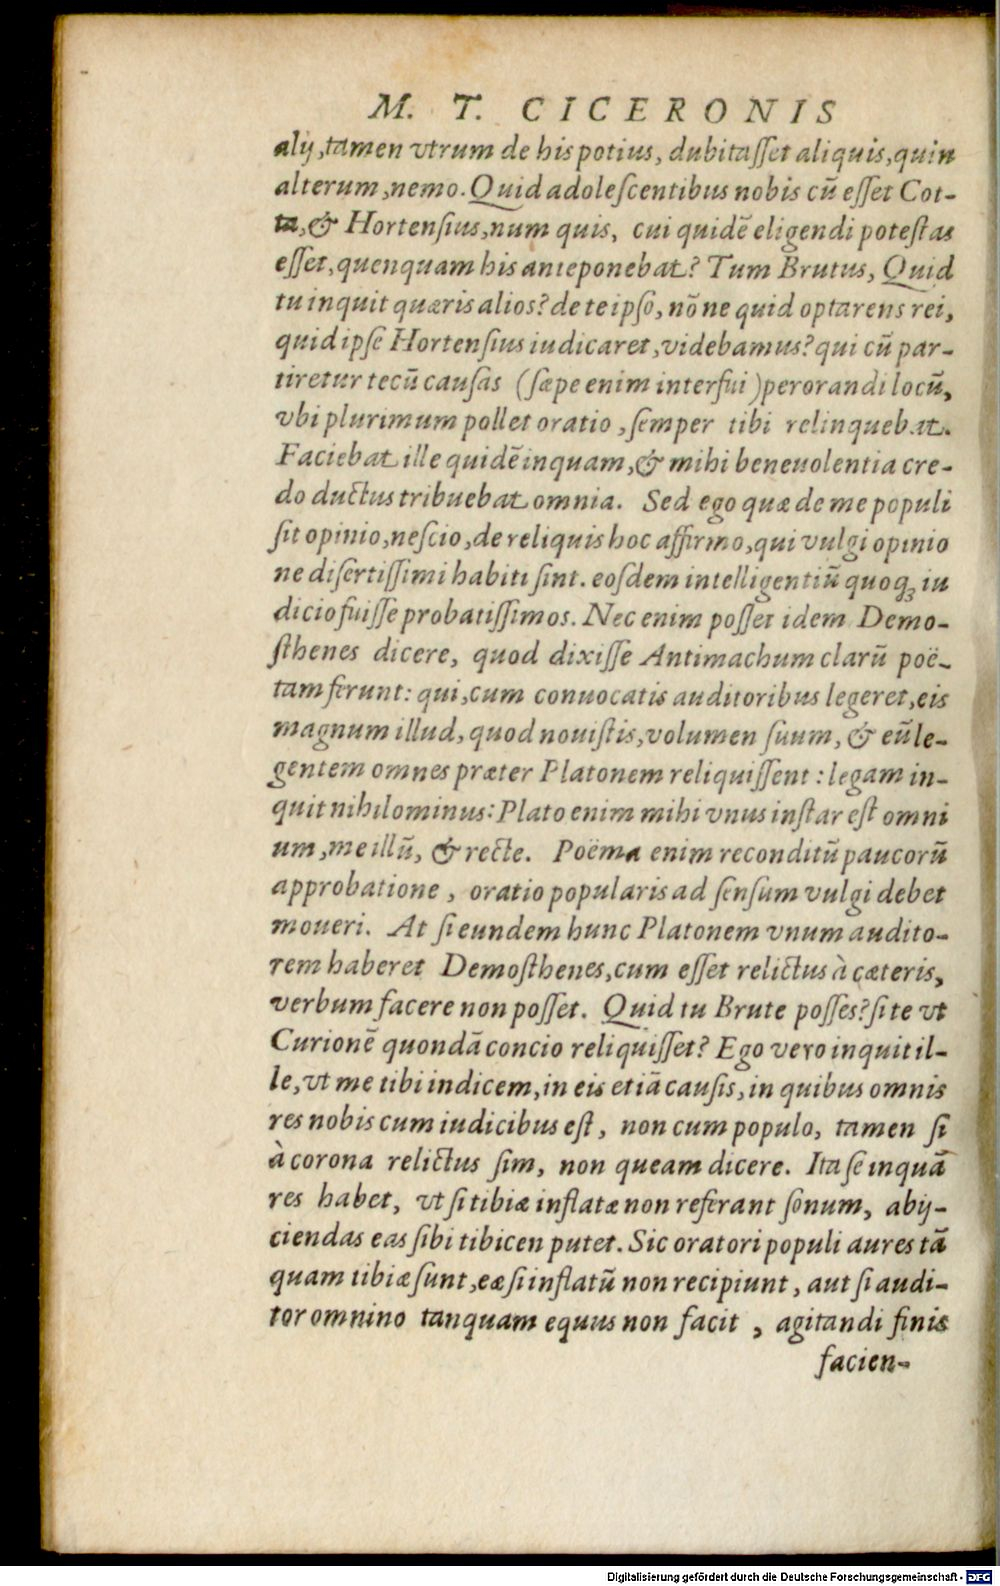 M. T. CICERONIS
alij, tamen vtrum de his potius, dubitaſſet aliquis, quin
alterum, nemo. Quid adoleſcentibus nobis cū eſſet Cot-
ta, & Hortenſius, num quis, cui quidē eligendi poteſtas
eſſet, quenquam his anteponebat? Tum Brutus, Quid
tu inquit quæris alios? de te ipſo, nōne quid optarens rei,
quid ipſe Hortenſius iudicaret, videbamus? qui cū par-
tiretur tecū cauſas (ſæpe enim interfui) perorandi locū,
vbi plurimum pollet oratio, ſemper tibi relinquebat.
Faciebat ille quidē inquam, & mihi beneuolentia cre-
do ductus tribuebat omnia. Sed ego quæ de me populi
ſit opinio, neſcio, de reliquis hoc affirmo, qui vulgi opinio
ne diſertiſſimi habiti ſint. eoſdem intelligentiū quoq; iu
dicio fuiſſe probatiſſimos. Nec enim poſſet idem Demo-
ſthenes dicere, quod dixiſſe Antimachum clarū poë-
tam ferunt: qui, cum conuocatis auditoribus legeret, eis
magnum illud, quod nouiſtis, volumen ſuum, & eū le-
gentem omnes præter Platonem reliquiſſent: legam in-
quit nihilominus: Plato enim mihi vnus inſtar eſt omni
um, me illū, & recte. Poëma enim reconditū paucorū
approbatione, oratio popularis ad ſenſum vulgi debet
moueri. At ſi eundem hunc Platonem vnum audito-
rem haberet Demoſthenes, cum eſſet relictus à cæteris,
verbum facere non poſſet. Quid tu Brute poſſes? ſi te vt
Curionē quondā concio reliquiſſet? Ego vero inquit il-
le, vt me tibi indicem, in eis etiā cauſis, in quibus omnis
res nobis cum iudicibus eſt, non cum populo, tamen ſi
à corona relictus ſim, non queam dicere. Ita ſe inquā
res habet, vt ſi tibiæ inflatæ non referant ſonum, abij-
ciendas eas ſibi tibicen putet. Sic oratori populi aures tā
quam tibiæ ſunt, eæ ſi inflatū non recipiunt, aut ſi audi-
tor omnino tanquam equus non facit, agitandi finis
facien-
Digitalisierung gefördert durch die Deutsche Forschungsgemeinschaft - DFG